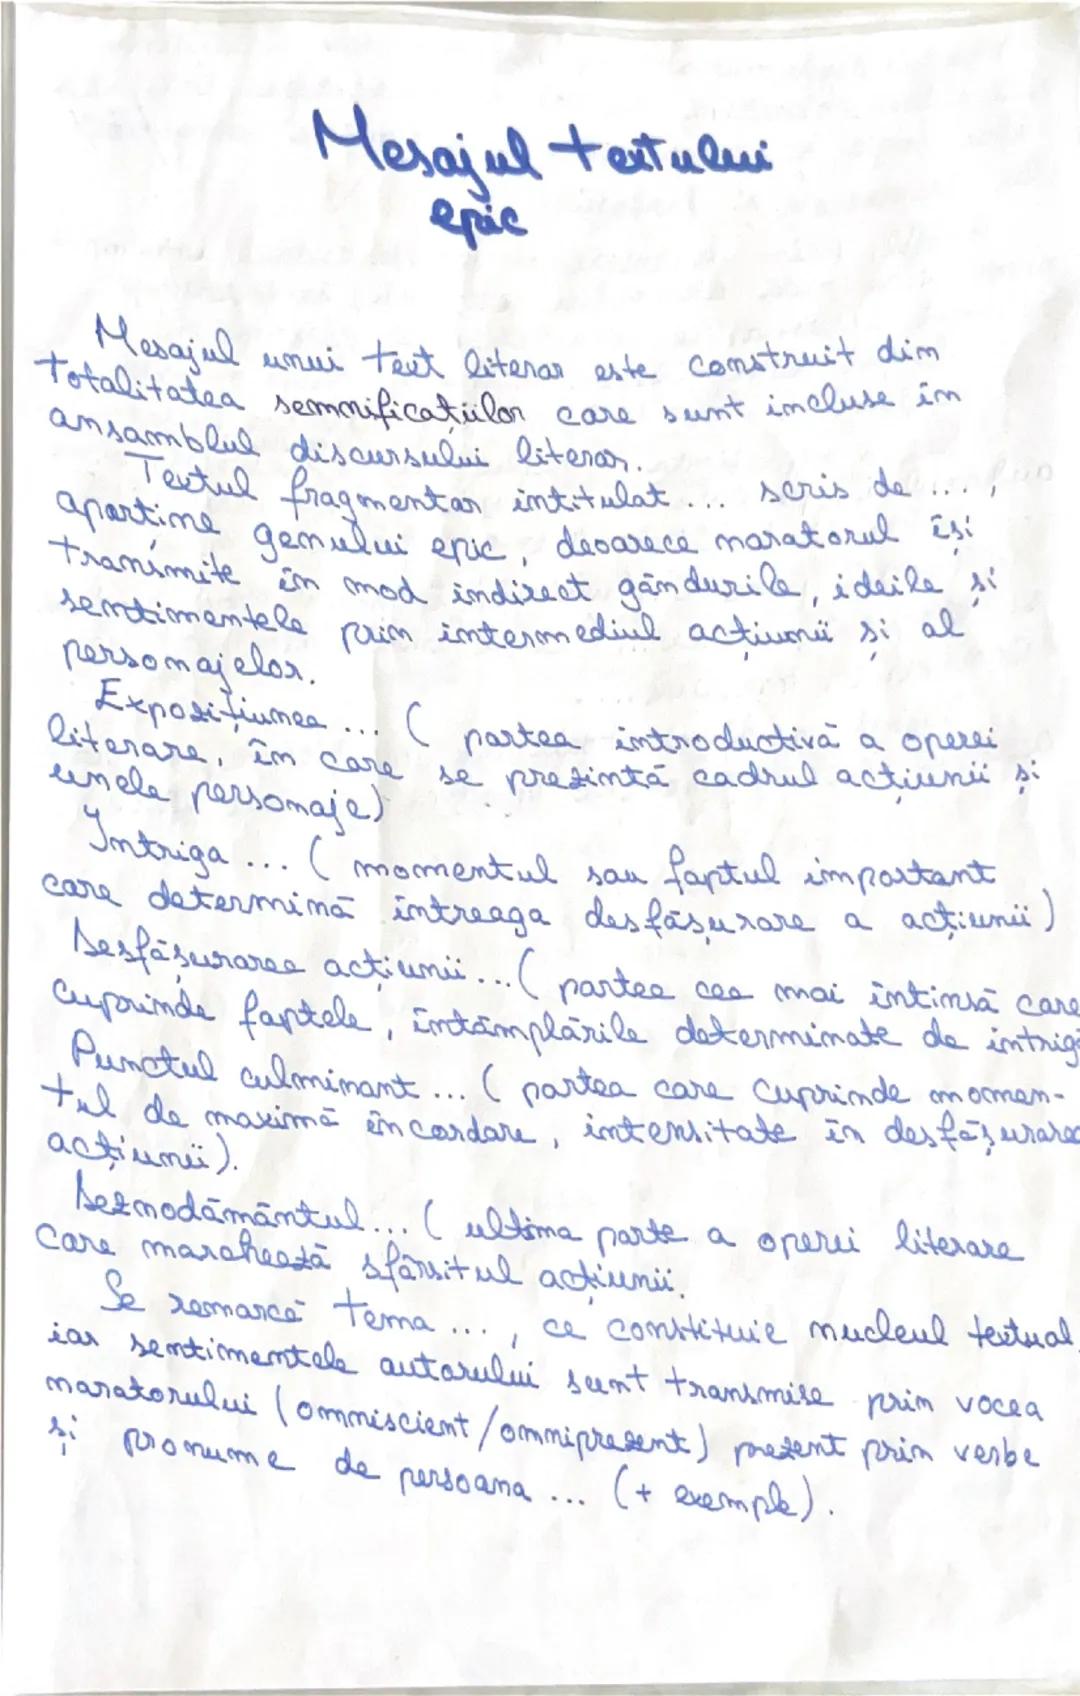 Mesajul textului
epic
Mesajul unui text literar este construit din
totalitatea semnificațiilor care sunt incluse în
ansamblul discursului literar.
Textul fragmentar intitulat ... scris de ...,
aparține genului epic, deoarece naratorul își
transmite în mod indirect gândurile, ideile și
sentimentele prin intermediul acțiunii și al
personajelor.
Expozițiunea ... ( partea introductivă a operei
literare, în care se prezintă cadrul acțiunii și
unele personaje)
Intriga ... ( momentul sau faptul important
care determină întreaga desfășurare a acțiunii)
Desfășurarea acțiunii ... ( partea cea mai întinsă care
cuprinde faptele, întâmplările determinate de intrigă
Punctul culminant ... ( partea care cuprinde momen-
tul de maximă încordare, intensitate în desfășurarea
acțiunii).
Deznodământul ... ( ultima parte a operei literare
care marchează sfârșitul acțiunii.
Se remarcă tema ..., ce constituie nucleul textual,
iar sentimentele autorului sunt transmise prin vocea
naratorului (omniscient/omniprezent) prezent prin verbe
și pronume de persoana ... (+ exemple).